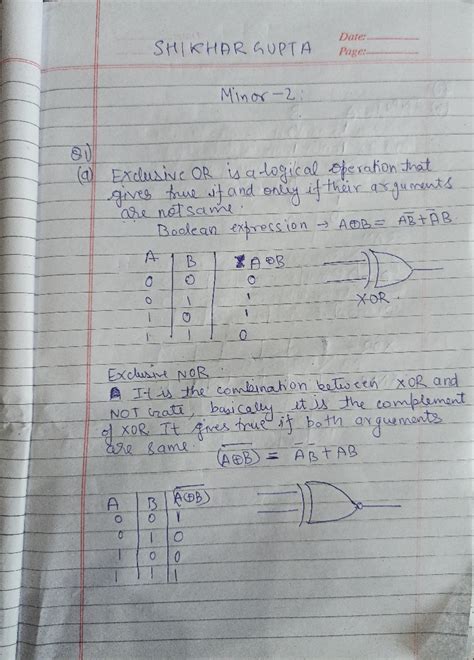 SHIKHAR GUPTA
Date:
Page:
Minor-2:
Q1)
(a) Exclusive OR is a logical operation that
gives true if and only if their arguments
are not same.
Boolean expression → A⊕B = AB̅ + A̅B
A B A⊕B
0 0 0
0 1 1
1 0 1
1 1 0
XOR.
Exclusive NOR
It is the combination between XOR and
NOT Gate, basically it is the complement
of XOR. It gives true if both arguements
are same. (A⊕B)̅ = A̅B̅ + AB
A B (A⊕B)̅
0 0 1
0 1 0
1 0 0
1 1 1